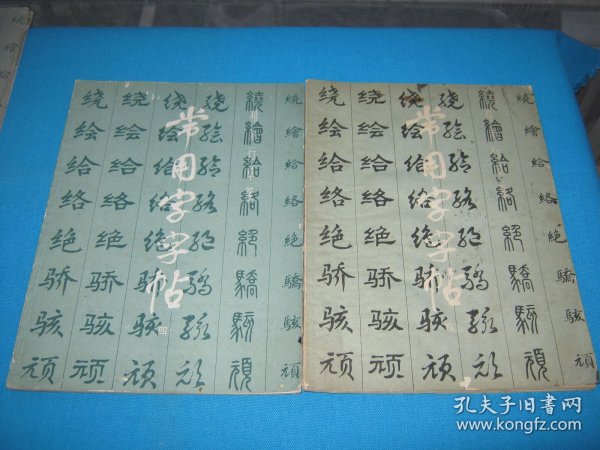 绕 绕 绕 绕 繞 繞
绘 绘 绘 绘 繪 繪
给 给 给 给 給 給
络 络 络 络 絡 絡
绝 绝 绝 绝 絕 絕
骄 骄 骄 骄 驕 驕
骇 骇 骇 骇 駭 駭
顽 顽 顽 顽 頑 頑
常用字字帖
四
绕 绕 绕 绕 繞 繞
绘 绘 绘 绘 繪 繪
给 给 给 给 給 給
络 络 络 络 絡 絡
绝 绝 绝 绝 絕 絕
骄 骄 骄 骄 驕 驕
骇 骇 骇 骇 駭 駭
顽 顽 顽 顽 頑 頑
常用字字帖
四
孔夫子旧书网
www.kongfz.com